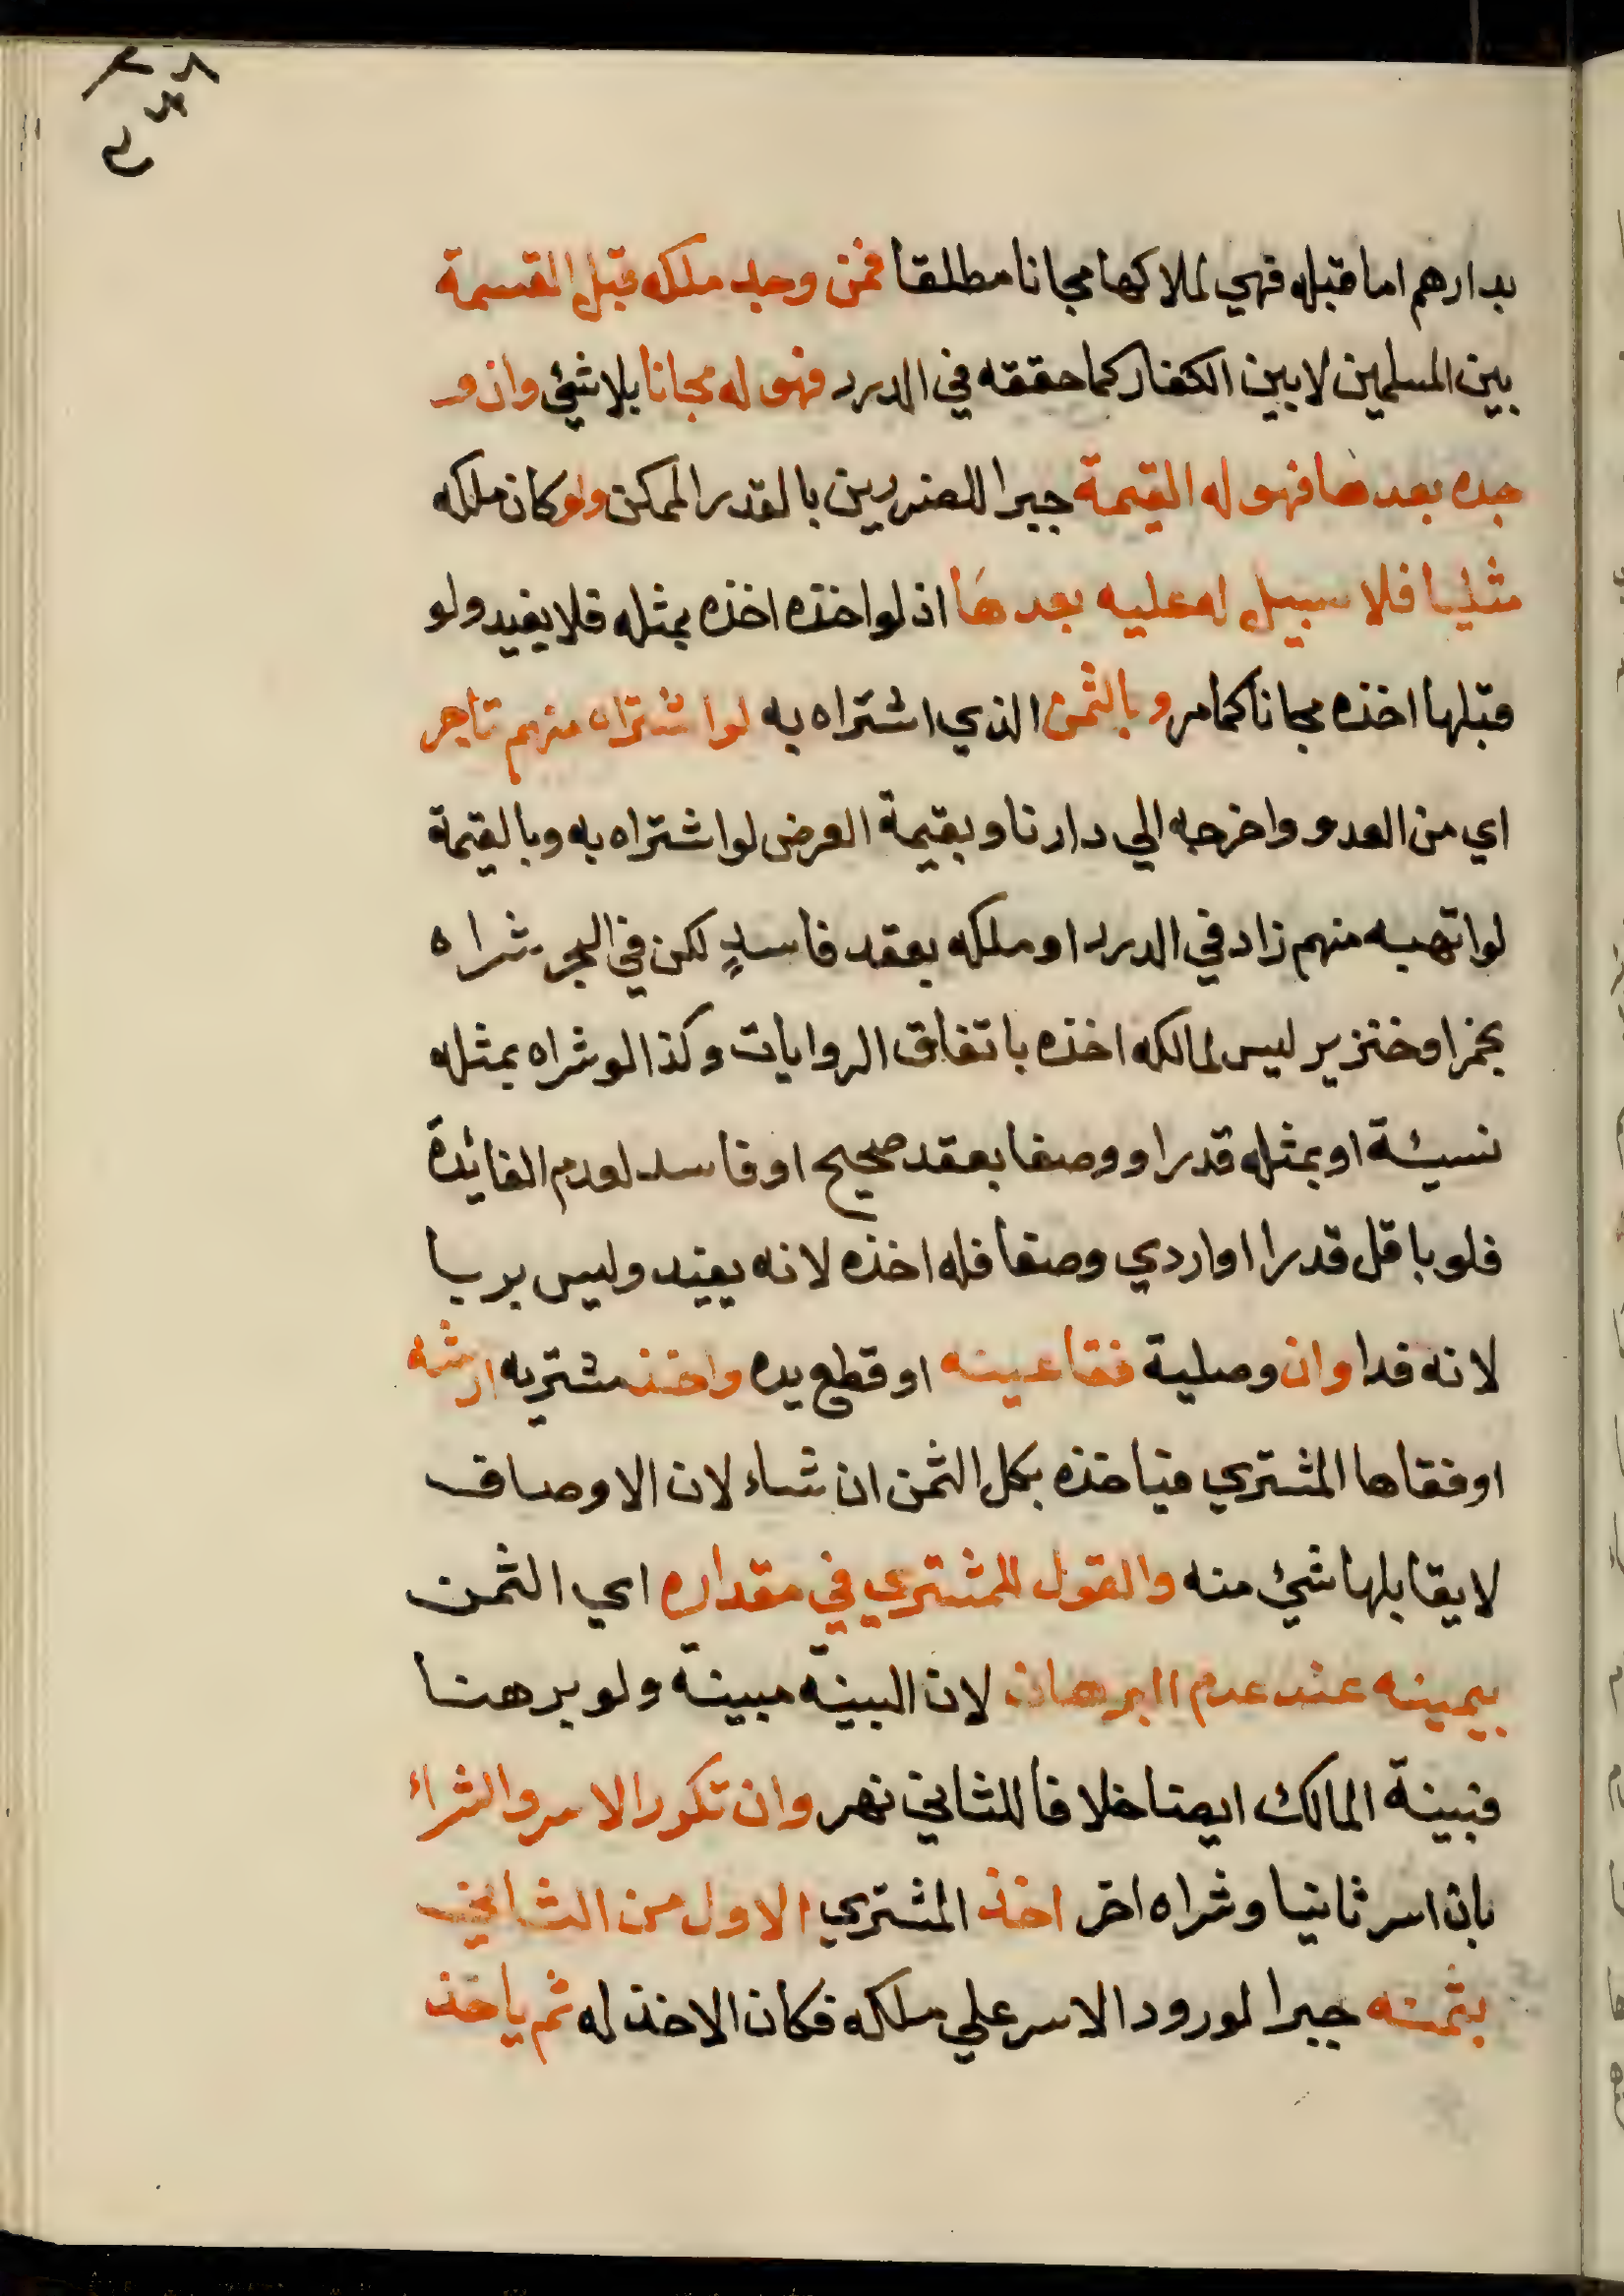 بدارهم اما قبله فهي لملاكها مجانا مطلقا فمن وجد ملكه قبل القسمة
بين المسلمين لا بين الكفار كما حققه في الدرر فهو له مجانا بلا شئ وان و
جده بعدها فهو له القيمة جبرا للضررين بالقدر الممكن ولو كان ملكه
مثليا فلا سبيل له عليه بعدها اذ لو اخذه اخذه بمثله فلا يفيد ولو
قبلها اخذه مجانا كما مر وبالثمن الذي اشتراه به لو اشتراه منهم تاجر
اي من العدو واخرجه الي دارنا وبقيمة العرض لو اشتراه به وبالقيمة
لو اتهبه منهم زاد في الدرر او ملكه بعقد فاسدٍ لكن في البحر شراه
بخمر او خنزير ليس لمالكه اخذه باتفاق الروايات وكذا لو شراه بمثله
نسيئة او بمثله قدرا ووصفا بعقد صحيح او فاسد لعدم الفائدة
فلو باقل قدرا او اردي وصفا فله اخذه لانه يفيد وليس بربا
لانه فدا وان وصلية فقا عينه او قطع يده واخذ مشتريه ارشه
او فقاها المشتري فياخذه بكل الثمن ان شاء لان الاوصاف
لا يقابلها شئ منه والقول للمشتري في مقداره اي الثمن
بيمينه عند عدم البرهان لان البينة مبينة ولو برهنا
فبينة المالك ايضا خلافا للثاني نهر وان تكرر الاسر والشراء
بان اسر ثانيا وشراه اخر اخذ المشتري الاول من الثاني
بثمنه جبرا لورود الاسر علي ملكه فكان الاخذ له ثم ياخذ